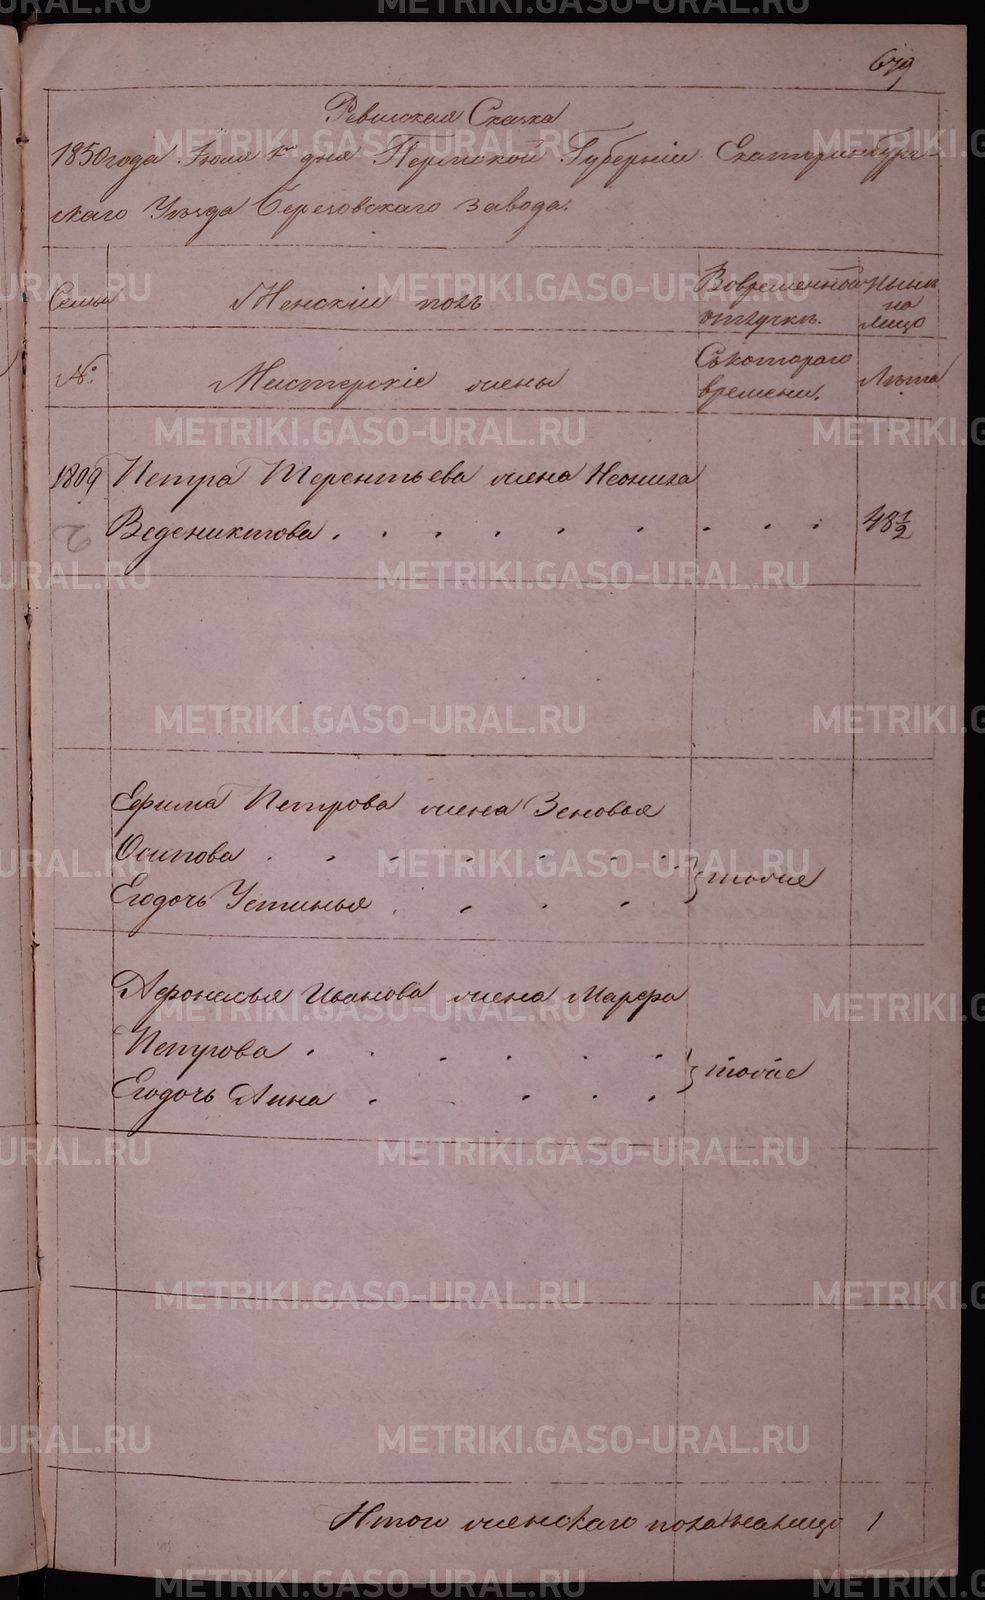 679
Ревизская Сказка
1850 года Июля 1го дня Пермской Губерніи Екатеринбург-
скаго Уѣзда Березовскаго завода.
Семьи
Женскій полъ
Во временной
отлучкѣ.
Нынѣ
на
лицо
№.
Мастерскіе жены
Съ котораго
времени.
Лѣта
1809
Петра Терентьева жена Неонила
2
Веденихтова
48 1/2
Ефима Петрова жена Зеновья
Осипова
Егодочь Устинья
тоже
Афонасья Иванова жена Марфа
Петрова
Егодочь Анна
тоже
Итого женскаго пола на лицо 1
METRIKI.GASO-URAL.RU